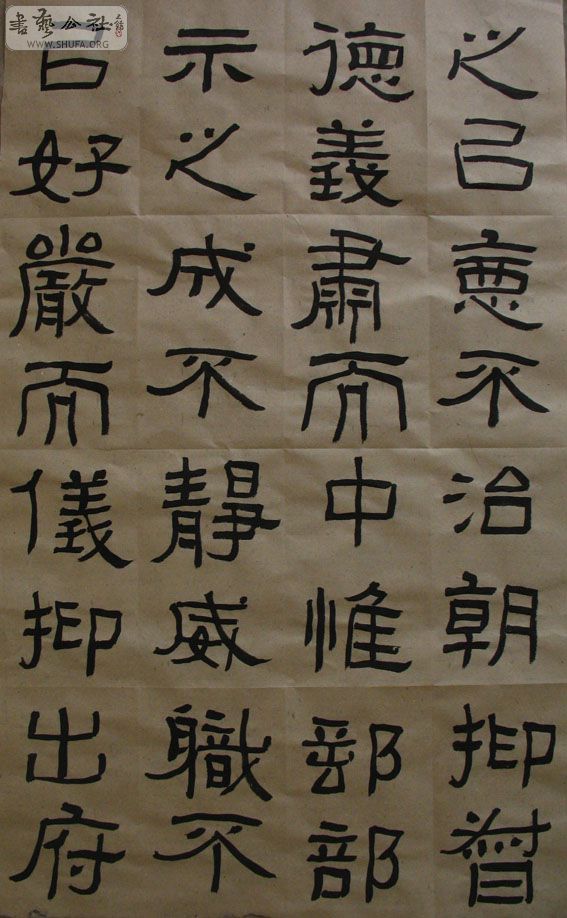 之以德義示之以好
惡不肅而成不嚴而
治朝中惟靜威儀抑
抑督郵部職不出府
書藝公社
WWW.SHUFA.ORG